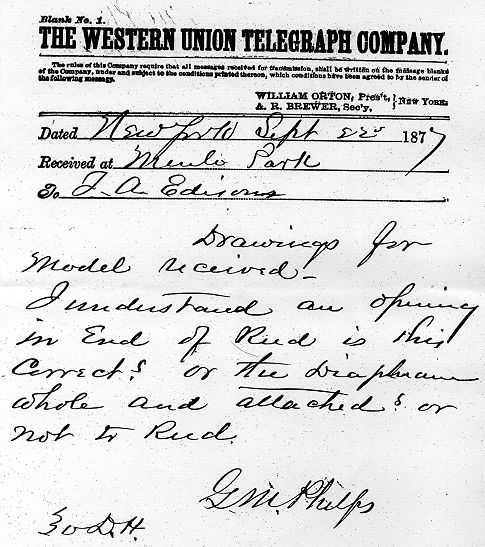 Blank No. 1.
THE WESTERN UNION TELEGRAPH COMPANY.
The rules of this Company require that all messages received for transmission, shall be written on the message blanks
of the Company, under and subject to the conditions printed thereon, which conditions have been agreed to by the sender of
the following message.
WILLIAM ORTON, Pres't,
A. R. BREWER, Sec'y, } NEW YORK.
Dated New York Sept 22 1877
Received at Menlo Park
To T. A. Edison
Drawings for
Model received –
I understand an opening
in End of Reed is this
Correct? or the Diaphram
whole and attached? or
not to Reed.
G M Phelps
30 D.H.